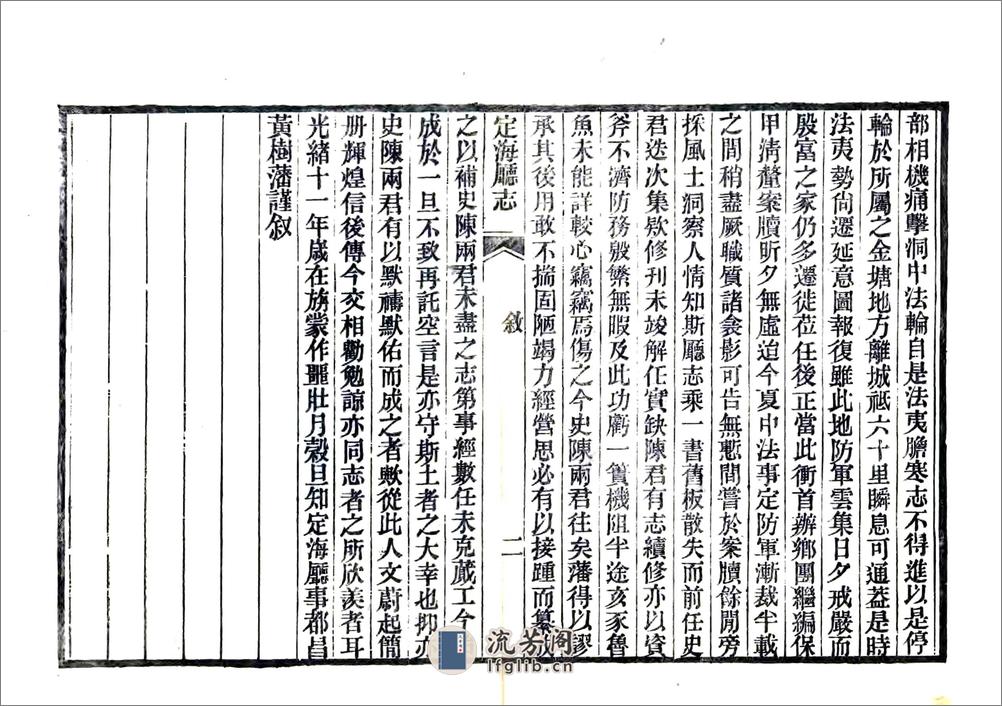 部相機痛擊洞中法輪自是法夷膽寒志不得進以是停
輪於所屬之金塘地方離城祗六十里瞬息可通葢是時
法夷勢尙遷延意圖報復雖此地防軍雲集日夕戒嚴而
殷富之家仍多遷徙莅任後正當此衝首辦鄉團繼編保
甲淸釐案牘昕夕無虛迨今夏中法事定防軍漸裁半載
之間稍盡厥職質諸衾影可告無慙間嘗於案牘餘閒旁
採風土洞察人情知斯廳志乘一書舊板散失而前任史
君迭次集欵修刊未竣解任實缺陳君有志續修亦以資
斧不濟防務殷繁無暇及此功虧一簣機阻半途亥豕魯
魚未能詳較心竊竊焉傷之今史陳兩君往矣藩得以謬
承其後用敢不揣固陋竭力經營思必有以接踵而纂
定海廳志
敘
二
之以補史陳兩君未盡之志第事經數任未克蕆工今
成於一旦不致再託空言是亦守斯土者之大幸也抑亦
史陳兩君有以默禱默佑而成之者歟從此人文蔚起簡
册輝煌信後傳今交相勸勉諒亦同志者之所欣羡者耳
光緒十一年歲在旃蒙作噩壯月穀旦知定海廳事都昌
黃樹藩謹叙
流芳阁
lfglib.cn